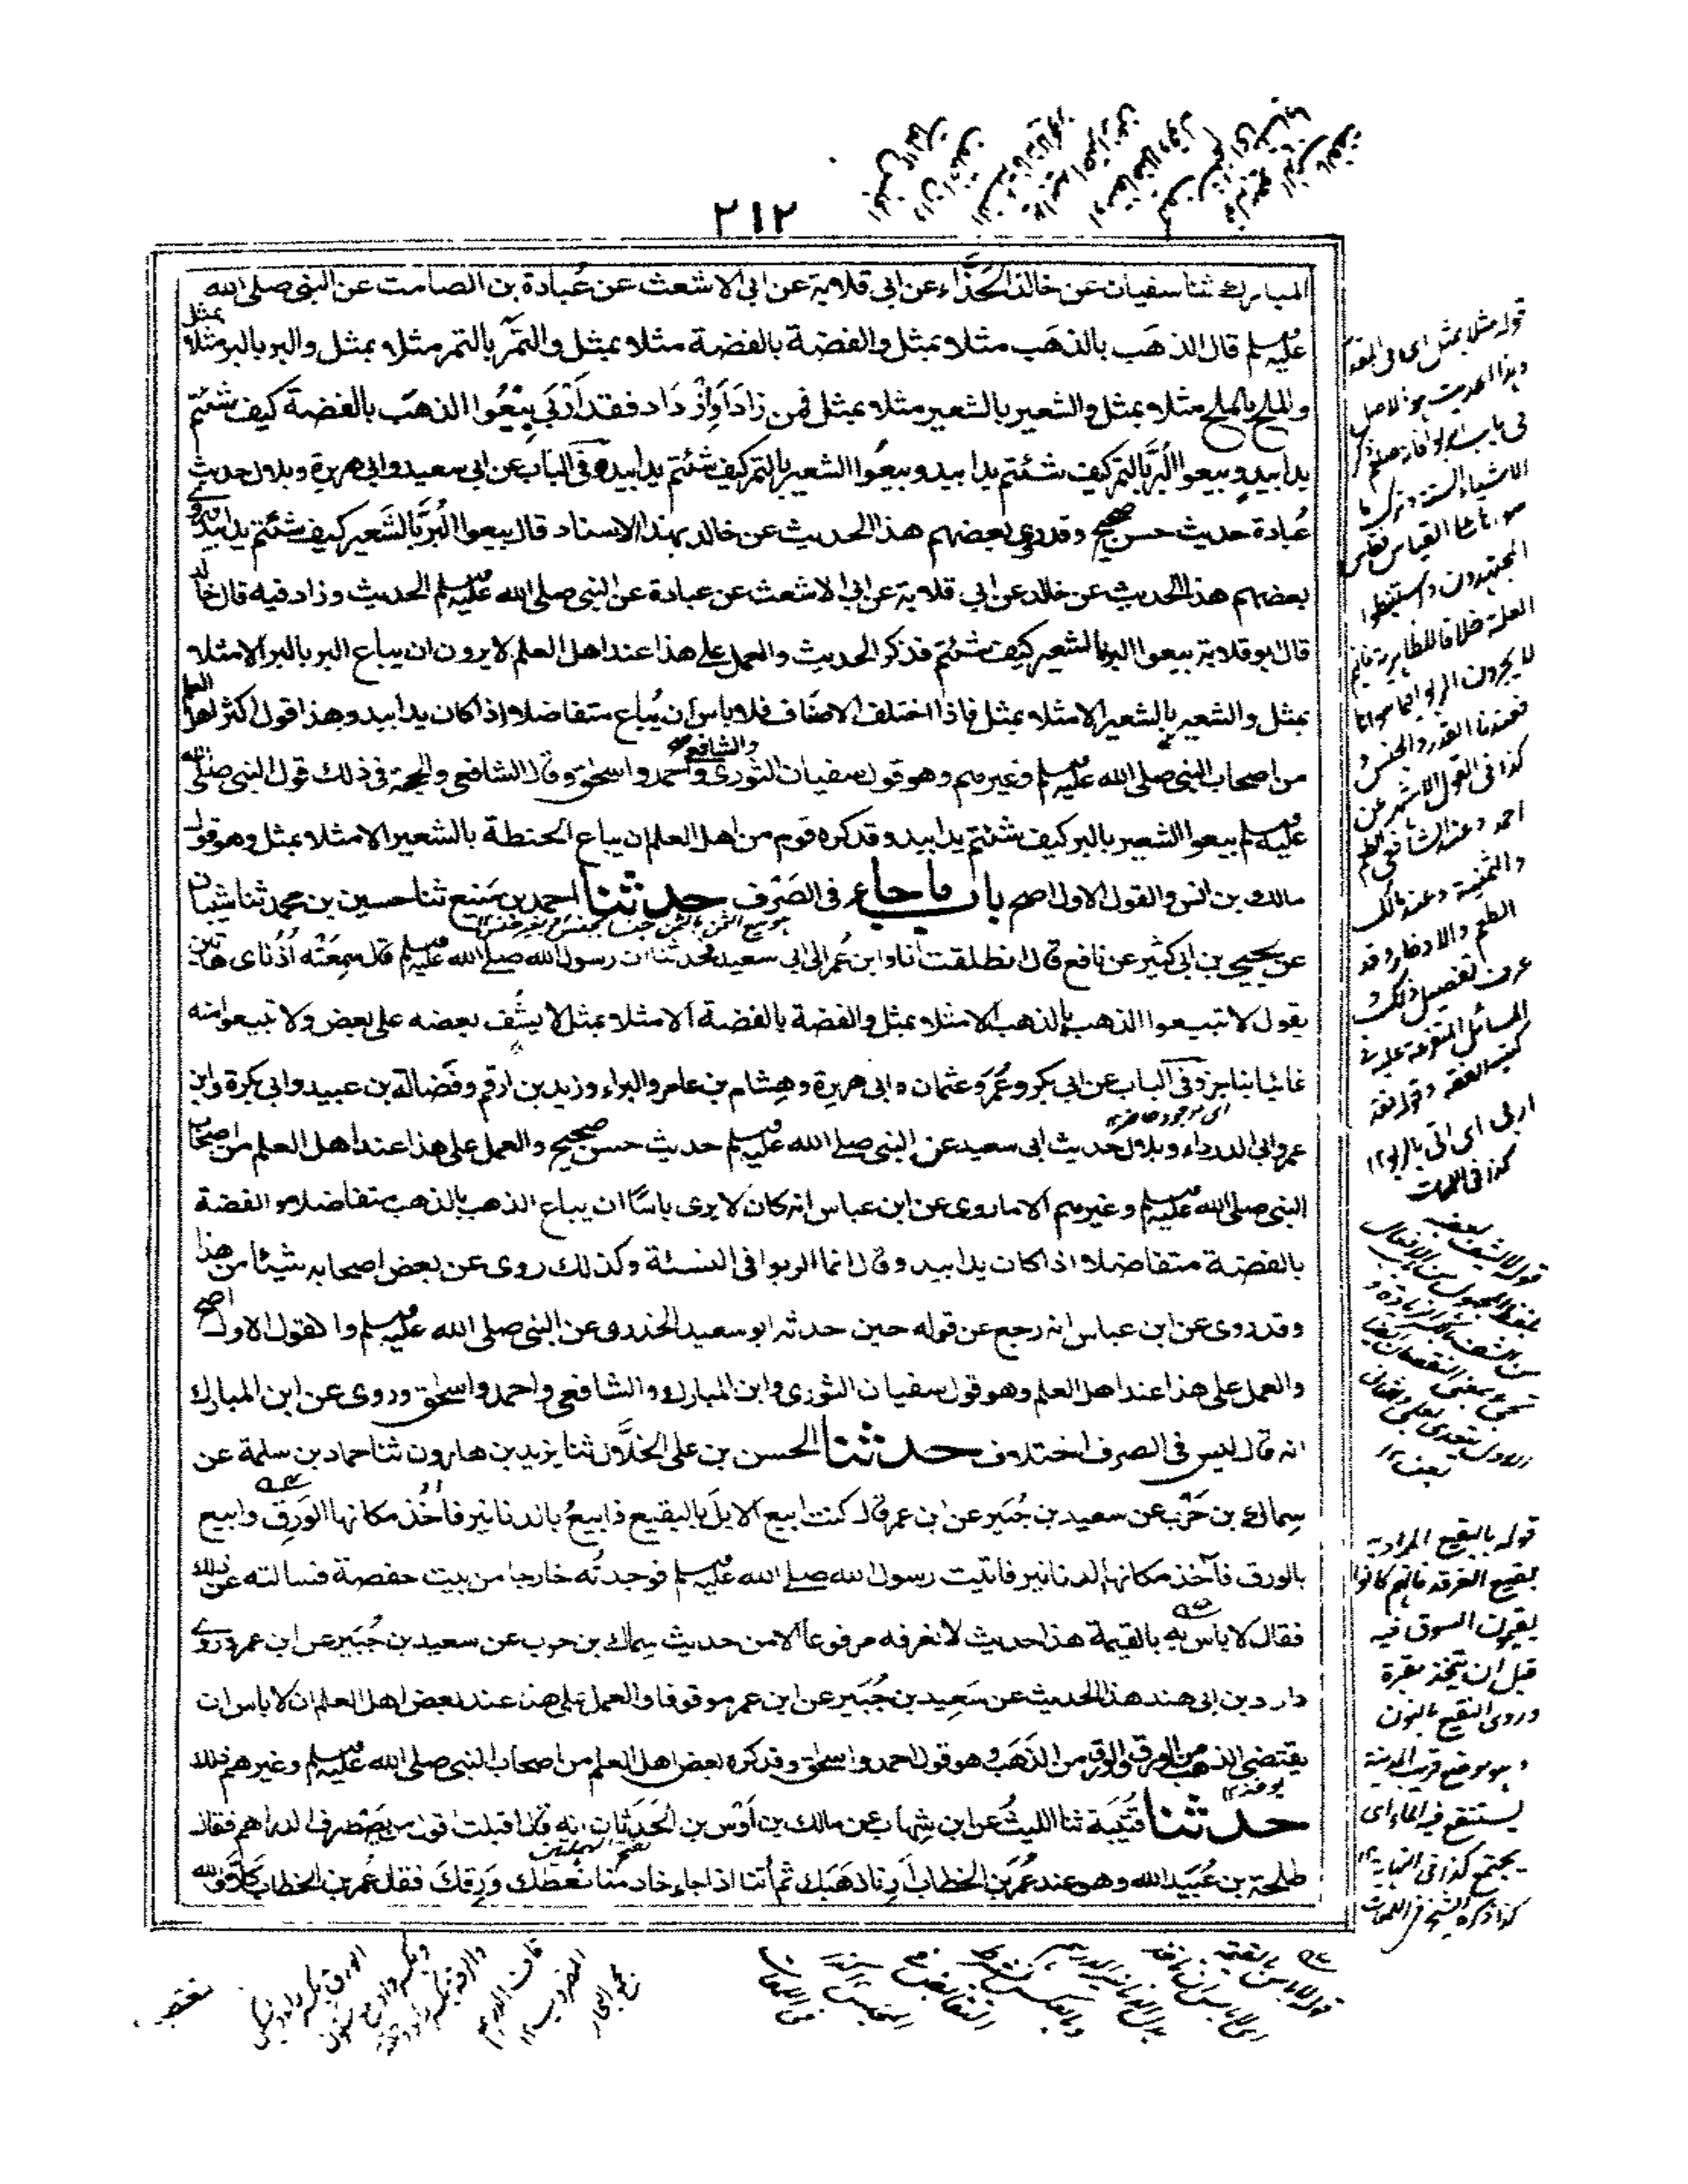 ٢١٢
المبارك ثنا سفيان عن خالد الحَذّاء عن ابي قلابة عن ابي الاشعث عن عُبادة بن الصامت عن النبي صلى الله
عليه وسلم قال الذهَب بالذهَب مثلا بمثل والفضة بالفضة مثلا بمثل والتمر بالتمر مثلا بمثل والبر بالبر مثلا بمثل
والملح بالملح مثلا بمثل والشعير بالشعير مثلا بمثل فمن زادَ اَوِازْدَاد فقد اَرْبٰى بِيْعُوا الذهب بالفضة كيف شئتم
يدا بيد وبيعوا البُرَّ بالتمر كيف شئتم يدا بيد وبيعُوا الشعير بالتمر كيف شئتم يدا بيد وفى الباب عن ابي سعيد وابي هريرة وبلال حديث
عُبادة حديث حسن صحيح وقد روى بعضهم هذا الحديث عن خالد بهذا الاسناد قال بيعوا البُرَّ بالشَعير كيف شئتم يدا بيد وروى
بعضهم هذا الحديث عن خالد عن ابي قلابة عن ابي الاشعث عن عبادة عن النبي صلى الله عليه وسلم الحديث وزاد فيه قال خالد
قال ابو قلابة بيعوا البر بالشعير كيف شئتم فذكر الحديث والعمل على هذا عند اهل العلم لا يرون ان يباع البر بالبر الا مثلا
بمثل والشعير بالشعير الا مثلا بمثل فاذا اختلف الاصناف فلا باس ان يُباع متفاضلا اذا كان يدا بيد وهذا قول اكثر اهل العلم
من اصحاب النبي صلى الله عليه وسلم وغيرهم وهو قول سفيان الثوري والشافعي واحمد واسحٰق وقال الشافعي والحجة في ذلك قول النبي صلى الله
عليه وسلم بيعوا الشعير بالبر كيف شئتم يدا بيد وقد كره قوم من اهل العلم ان يباع الحنطة بالشعير الا مثلا بمثل وهو قول
مالك بن انس والقول الاول اصح باب ما جاء في الصَرْف حدثنا احمد بن مَنيع ثنا حسين بن محمد ثنا شيبان
عن يحيى بن ابي كثير عن نافع قال انطلقت انا وابن عُمر الى ابي سعيد فحدثنا ان رسول الله صلى الله عليه وسلم قال سمِعَتْه اُذُناى هاتين
يقول لا تبيعوا الذهب بالذهب الا مثلا بمثل والفضة بالفضة الا مثلا بمثل لا يُشَف بعضه على بعض ولا تبيعوا منه
غائبا بناجز وفى الباب عن ابي بكر وعُمَر وعثمان وابي هريرة وهِشام بن عامر والبراء وزيد بن ارقم وفَضالة بن عبيد وابي بكرة وابن
عمر وابي الدرداء وبلال حديث ابي سعيد عن النبي صلى الله عليه وسلم حديث حسن صحيح والعمل على هذا عند اهل العلم من اصحاب
النبي صلى الله عليه وسلم وغيرهم الا ما روى عن ابن عباس انه كان لا يرى باسًا ان يباع الذهب بالذهب متفاضلا والفضة
بالفضة متفاضلا اذا كان يدا بيد وقال انما الربوا في النسئة وكذلك روى عن بعض اصحابه شيئا من هذا
وقد روى عن ابن عباس انه رجع عن قوله حين حدثه ابو سعيد الخدرى عن النبي صلى الله عليه وسلم والقول الاول اصح
والعمل على هذا عند اهل العلم وهو قول سفيان الثوري وابن المبارك والشافعي واحمد واسحٰق وروى عن ابن المبارك
انه قال ليس في الصرف اختلاف حدثنا الحسن بن على الخلَّال ثنا يزيد بن هارون ثنا حماد بن سلمة عن
سِماك بن حَرْب عن سعيد بن جُبَير عن ابن عمر قال كنت ابيع الابلَ بالبقيع فابيعُ بالدنانير فآخُذ مكانها الوَرِق وابيع
بالورق فآخذ مكانها الدنانير فاتيت رسول الله صلى الله عليه وسلم فوجدتُه خارجا من بيت حفصة فسالته عن ذلك
فقال لا باس به بالقيمة هذا حديث لا نعرفه مرفوعا الا من حديث سِماك بن حرب عن سعيد بن جُبَير عن ابن عمر وروى
داود بن ابي هند هذا الحديث عن سَعِيد بن جُبَير عن ابن عمر موقوفا والعمل على هذا عند بعض اهل العلم ان لا باس ان
يقتضى الذهب من الورق والورق من الذَهَب وهو قول احمد واسحٰق وقد كره بعض اهل العلم من اصحاب النبي صلى الله عليه وسلم وغيرهم ذلك
حدثنا قُتَيْبَة ثنا الليثُ عن ابن شِهاب عن مالك بن اَوْس بن الحَدَثانِ انه قال اقبلت اقول من يصْطرف الدراهم فقال
طلحة بن عُبَيد الله وهو عند عُمَر بن الخطاب اَرِنا ذهَبَك ثم أتنا اذا جاء خادمنا نُعطك وَرِقكَ فقال عُمر بن الخطاب كلا والله
قوله مثلا بمثل اى فى القدر
وهذا الحديث هو الاصل
فى باب الربوا فانه صلعم ذكر
الاشياء الستة وترك ما
سواها على القياس فقاس
المجتهدون واستنبطوا
العلة خلافا للظاهرية فانهم
لا يجرون الربوا فيما سواها
فعندنا القدر والجنس و
كذا فى القول الاشهر عن
احمد وعند الشافعى الطعم
والثمنية وعند مالك
الطعم والادخار وقد
عرف تفصيل ذلك و
المسائل المتفرعة عليه فى
كتب الفقه وقوله فقد
اربى اى اتى بالربوا ١٢
كذا فى اللمعات
قوله بالبقيع المراد به
بقيع الغرقد فانهم كانوا
يقيمون السوق فيه
قبل ان يتخذ مقبرة
وروى النقيع بالنون
وهو موضع قريب المدينة
يستنقع فيه الماء اى
يجتمع كذا فى النهاية ١٢
كذا ذكره الشيخ فى اللمعات